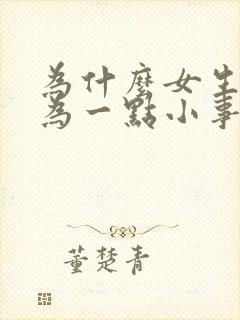 為什麼女生
為一點小事
董楚青